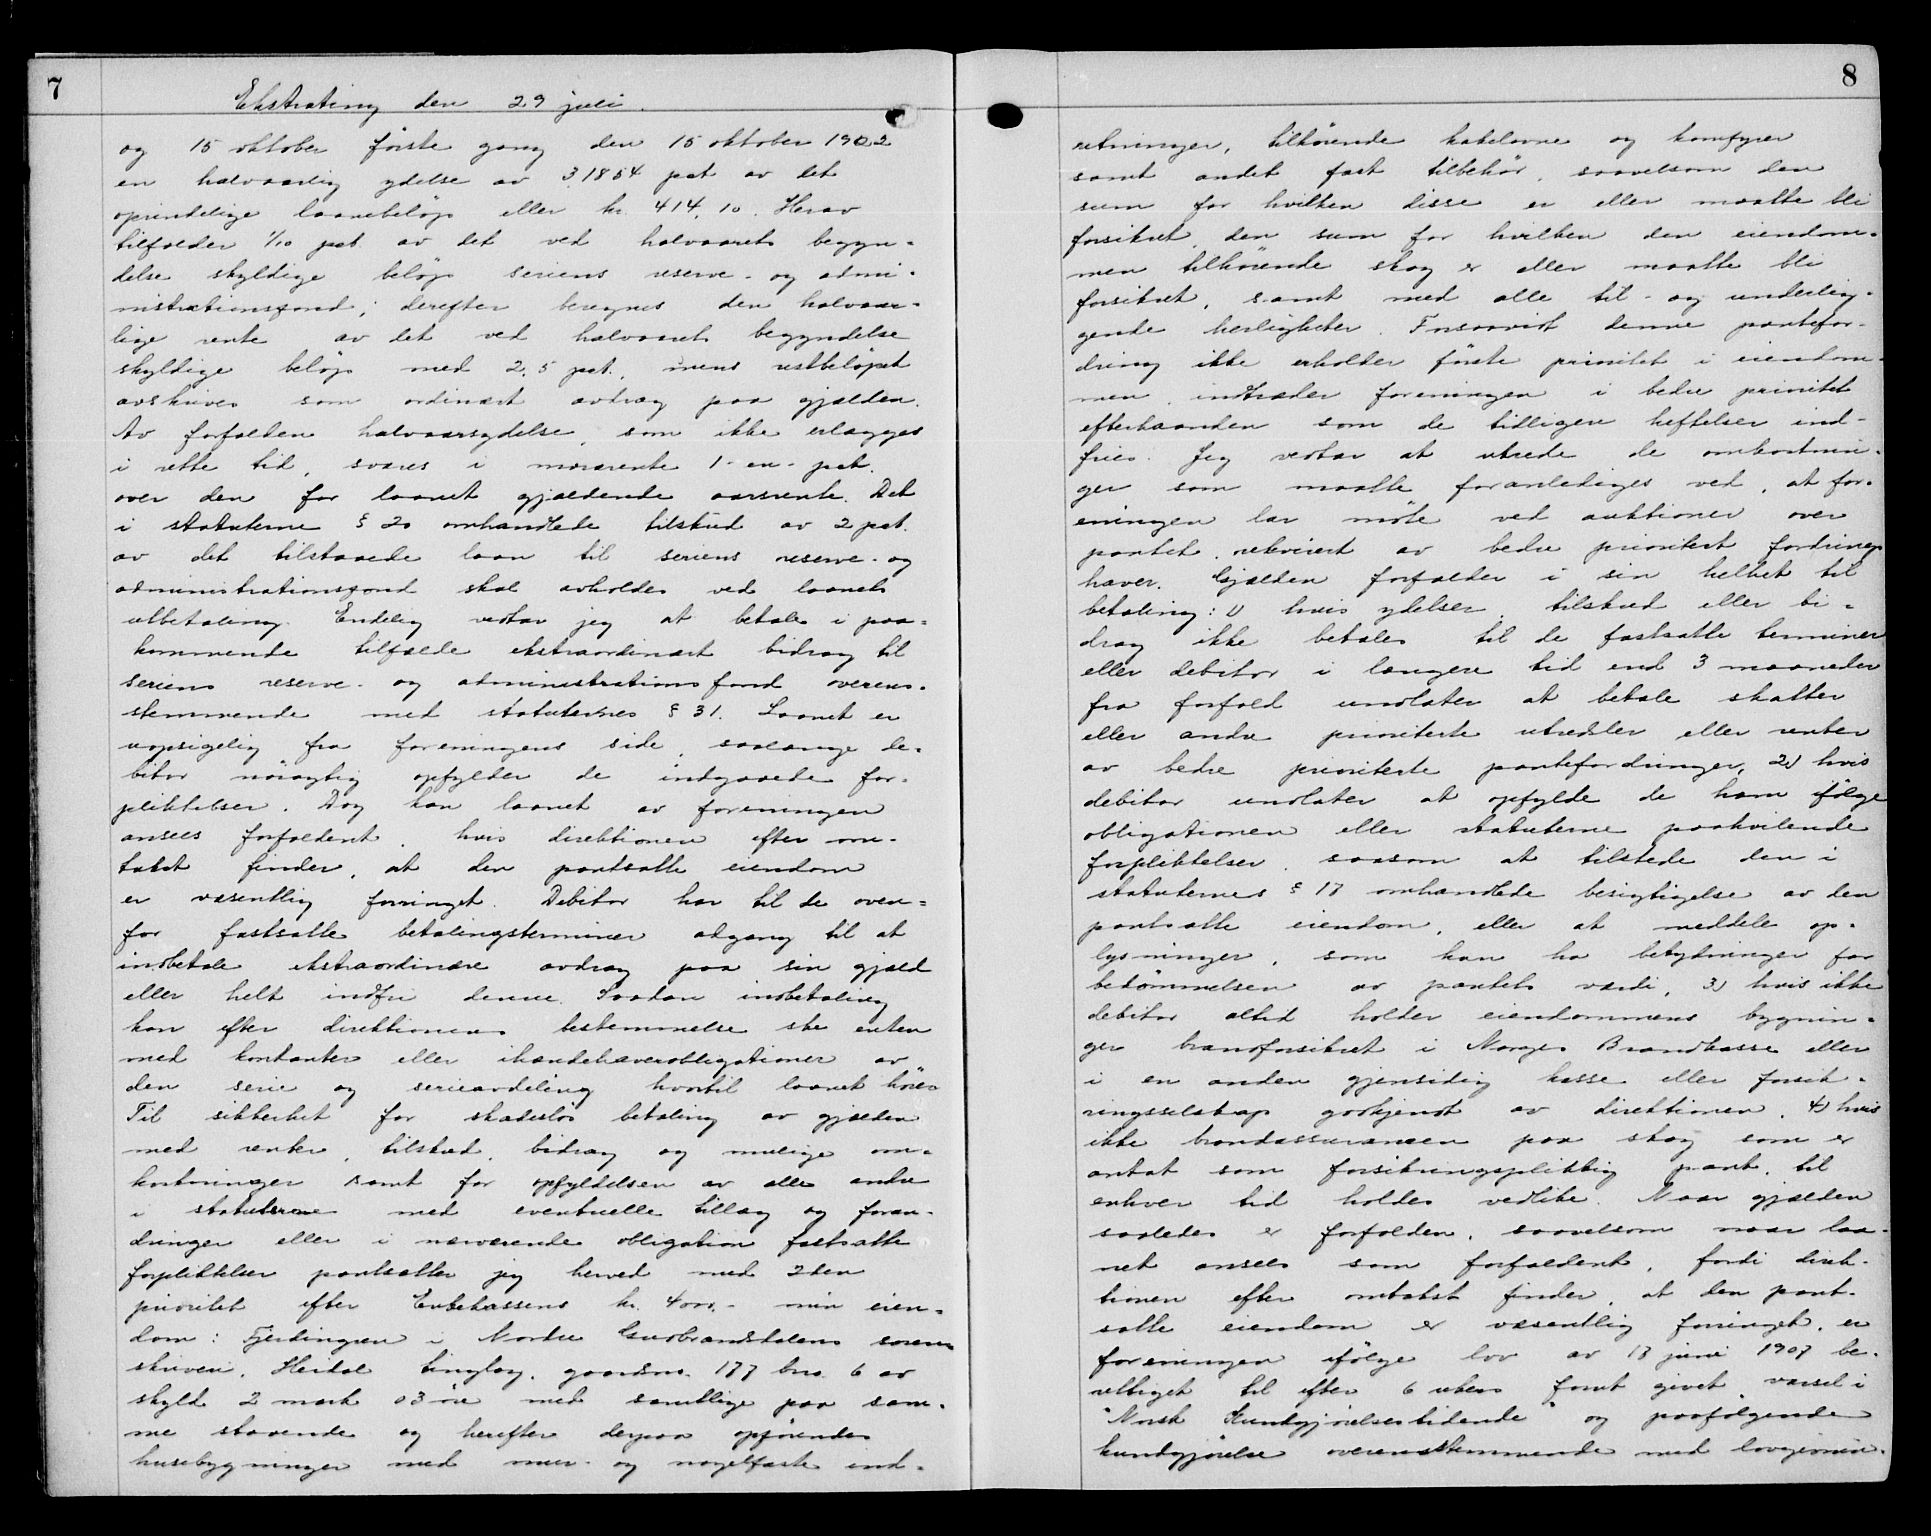 7
Ekstrating den 29 juli.
og 15 oktober første gang den 15 oktober 1922
en halvaarlig ydelse av 3.1854 pct av det
oprindelige laanebeløp eller kr. 414,10. Herav
tilfalder 1/10 pct. av det ved halvaarets begyn-
delse skyldige beløp seriens reserve- og admi-
nistrationsfond; derefter beregnes den halvaar-
lige rente av det ved halvaarets begyndelse
skyldige beløp med 2,5 pct., mens restbeløpet
avskrives som ordinært avdrag paa gjælden.
Av forfalden halvaarsydelse, som ikke erlægges
i rette tid, svares i morarente 1-en-pct.
over den for laanet gjældende aarsrente. Det
i statuterne § 20 omhandlede tilskud av 2 pct.
av det tilstaaede laan til seriens reserve- og
administrationsfond skal avholdes ved laanets
utbetaling. Endelig vedtar jeg at betale i paa=
kommende tilfælde ekstraordinært bidrag til
seriens reserve- og administrationsfond overens-
stemmende med statuternes § 31. Laanet er
uopsigelig fra foreningens side, saalænge de-
bitor nøiagtig opfylder de indgaaede for-
pliktelser. Dog kan laanet av foreningen
ansees forfaldent, hvis direktionen efter om-
takst finder, at den pantsatte eiendom
er væsentlig forringet. Debitor har til de oven=
for fastsatte betalingsterminer adgang til at
indbetale ekstraordinære avdrag paa sin gjæld
eller helt indfri denne. Saadan indbetaling
kan efter direktionens bestemmelse ske enten
med kontanter eller ihændehaverobligationer av
den serie og serieavdeling hvortil laanet hører
Til sikkerhet for skadesløs betaling av gjælden
med renter, tilskud, bidrag og mulige om-
kostninger samt for opfyldelsen av alle andre
i statuterne med eventuelle tillæg og foran-
dringer eller i nærværende obligation fastsatte
forpliktelser pantsætter jeg herved med 2den
prioritet efter Enkekassens kr. 4000.- min eien=
dom: Fjerdingren i Nordre Gudbrandsdalens soren
skriveri, Heidal tinglag, gaardsno. 177 brno. 6 av
skyld 2 mark 03 øre med samtlige paa sam-
me staaende og herefter derpaa opførendes
husebygninger med mur- og nagelfaste ind-
8
retninger, tilhørende kakelovne og komfyrer
samt andet fast tilbehør, saavelsom den
sum for hvilken disse er eller maatte bli
forsikret, den sum for hvilken den eiendom-
men tilhørende skog er eller maatte bli
forsikret, samt med alle til- og underlig-
gende herligheter. Forsaavidt denne pantefor-
dring ikke erholder første prioritet i eiendom-
men, indtræder foreningen i bedre prioritet
efterhaanden som de tidligere heftelser ind-
fries. Jeg vedtar at utrede de omkostnin-
ger som maatte foranlediges ved, at for-
eningen lar møte ved auktioner over
pantet, rekvirert av bedre prioritert fordrings
haver. Gjælden forfalder i sin helhet til
betaling: 1) hvis ydelser, tilskud eller bi-
drag ikke betales til de fastsatte terminer
eller debitor i længere tid end 3 maaneder
fra forfald undlater at betale skatter
eller andre prioriterte utredsler eller renter
av bedre prioriterte pantefordringer, 2) hvis
debitor undlater at opfylde de ham ifølge
obligationen eller statuterne paahvilende
forpliktelser, saasom at tilstede den i
statuternes § 17 omhandlede besigtigelse av den
pantsatte eiendom, eller at meddele op-
lysninger, som kan ha betydninger for
bedømmelsen av pantets værdi, 3) hvis ikke
debitor altid holder eiendommens bygnin-
ger brandforsikret i Norges Brandkasse eller
i en anden gjensidig kasse eller forsik-
ringsselskap godkjendt av direktionen, 4) hvis
ikke brandassurancen paa skog som er
antat som forsikringspliktig pant, til
enhver tid holdes vedlike. Naar gjælden
saaledes er forfalden, saavelsom naar laa-
net ansees som forfaldent, fordi direk-
tionen efter omtakst finder, at den pant-
satte eiendom er væsentlig forringet, er
foreningen ifølge lov av 18 juni 1907 be-
rettiget til efter 6 ukers forut givet varsel i
"Norsk Kundgjørelsestidende" og paafølgende
kundgjørelse overensstemmende med lovgivnin-